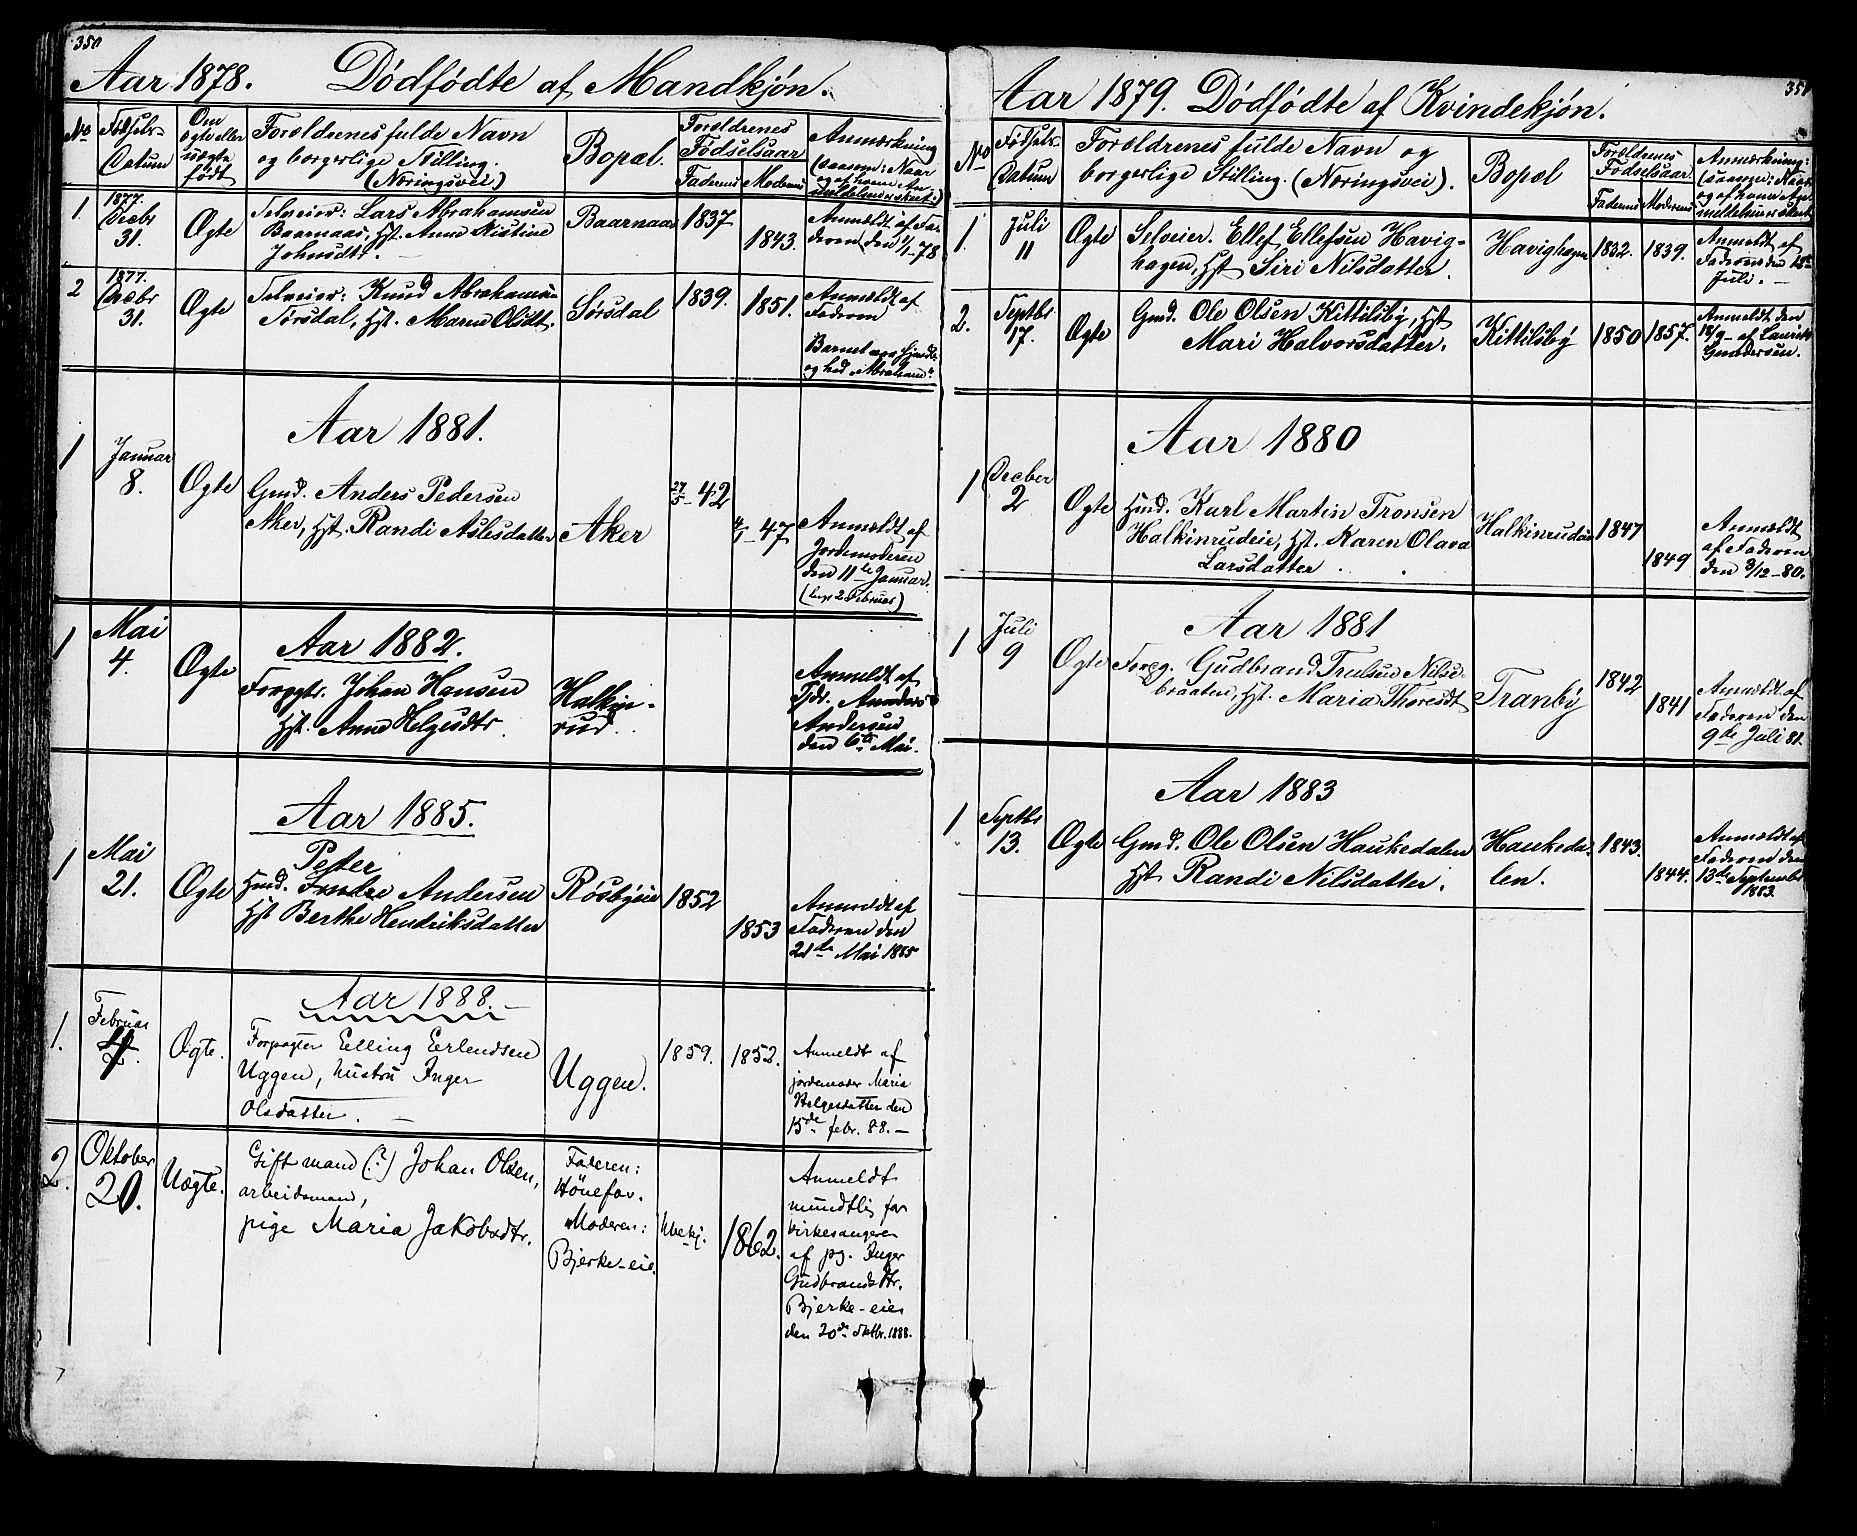 350
Aar 1878. Dødfødte af Mandkjøn.
No Fødsels-Datum
Om ægte eller uægte født
Forældrenes fulde Navn og borgerlige Stilling. (Næringsvei)
Bopæl.
Forældrenes Fødselsaar
Faderens Moderens
Anmærkning
1. 1877. Decbr 31. Ægte
Selveier: Lars Abrahamsen
Baarnaas, Hst. Anne Kistine
Johnsdtr.
Baarnaas 1837 1843.
Anmeldt af Fa-
deren den 1/1-78
2 1877. Decbr 31. Ægte
Selveier: Knud Abrahamsen
Sørsdal, Hst. Maren Olsdt.
Sørsdal 1839. 1851.
Anmeldt af
Faderen
Barnet
og hed "Abraham".
Aar 1881.
1 Januar 8. Ægte
Gmd. Anders Pedersen
Aker, Hst. Randi Aslesdatter
Aker 27/5-42 4/1-47
Anmældt af
Jordemoderen
den 11te Januar.
Aar 1882.
1 Mai 4. Ægte
Forpgtr. Johan Hansen
Hst. Anne Helgesdtr.
Halkin-
rud.
Anmeldt af
Anders
Andersen
den 6te Mai.
Aar 1885.
1 Mai 21. Ægte
Peter
Hmd. Andersen
Hst Berthe Hendriksdatter
Røsbyeie 1852 1853
Anmeldt af
Faderen den
21de Mai 1885
Aar 1888.
1. Februar Ægte.
Forpagter Elling Erlendsen
Uggen, hustru Inger
Olsdatter.
Uggen. 1859. 1852.
Anmeldt af
jordemoder Maria
Helgesdatter den
15de febr. 88.
2. Oktober 20. Uægte.
Gift mand (?) Johan Olsen,
arbeidsmand,
pige Maria Jakobsdtr.
Faderen:
Hönefos.
Moderen:
Bjerke-eie.
Ubekj. 1862.
Anmeldt
mundtlig for
kirkesangeren
af pg. Inger
Gudbrandsdtr.
Bjerke-eie
den 20de Oktbr. 1888.
351
Aar 1879. Dødfødte af Kvindekjøn.
No Fødsels-Datum
Forældrenes fulde Navn og
borgerlige Stilling. (Næringsvei).
Bopæl
Forældrenes Fødselsaar
Faderens Moderens
Anmærkning:
1. Juli 11 Ægte
Selveier. Ellef Ellefsen Havig-
hagen, Hst Siri Nilsdatter.
Havighagen 1832. 1839.
Anmeldt af
Faderen den
Juli.
2. Septbr 17. Ægte
Gmd. Ole Olsen Kittilsby, Hst
Mari Halvorsdatter.
Kittilsby 1850 1857.
Anmeldt den
18/9 af Laurits
Gundersen.
Aar 1880
1 Decber 2 Ægte
Hmd. Karl Martin Tronsen
Halkinrudeie, Hst. Karen Olava
Larsdatter.
Halkinrudeie 1847 1849
Anmældt
af Faderen
den 3/12-80.
Aar 1881
1 Juli 9 Ægte
Forpg. Gudbrand Trulsen Nilse-
braaten, Hst. Maria Thoresdt
Tranby 1842 1841
Anmeldt af
Faderen den
9de Juli 81.
Aar 1883
1 Septbr 13. Ægte
Gmd. Ole Olsen Haukedalen
Hst Randi Nilsdatter.
Haukeda-
len.
1843. 1844.
Anmældt af
Faderen den
13de September
1883.